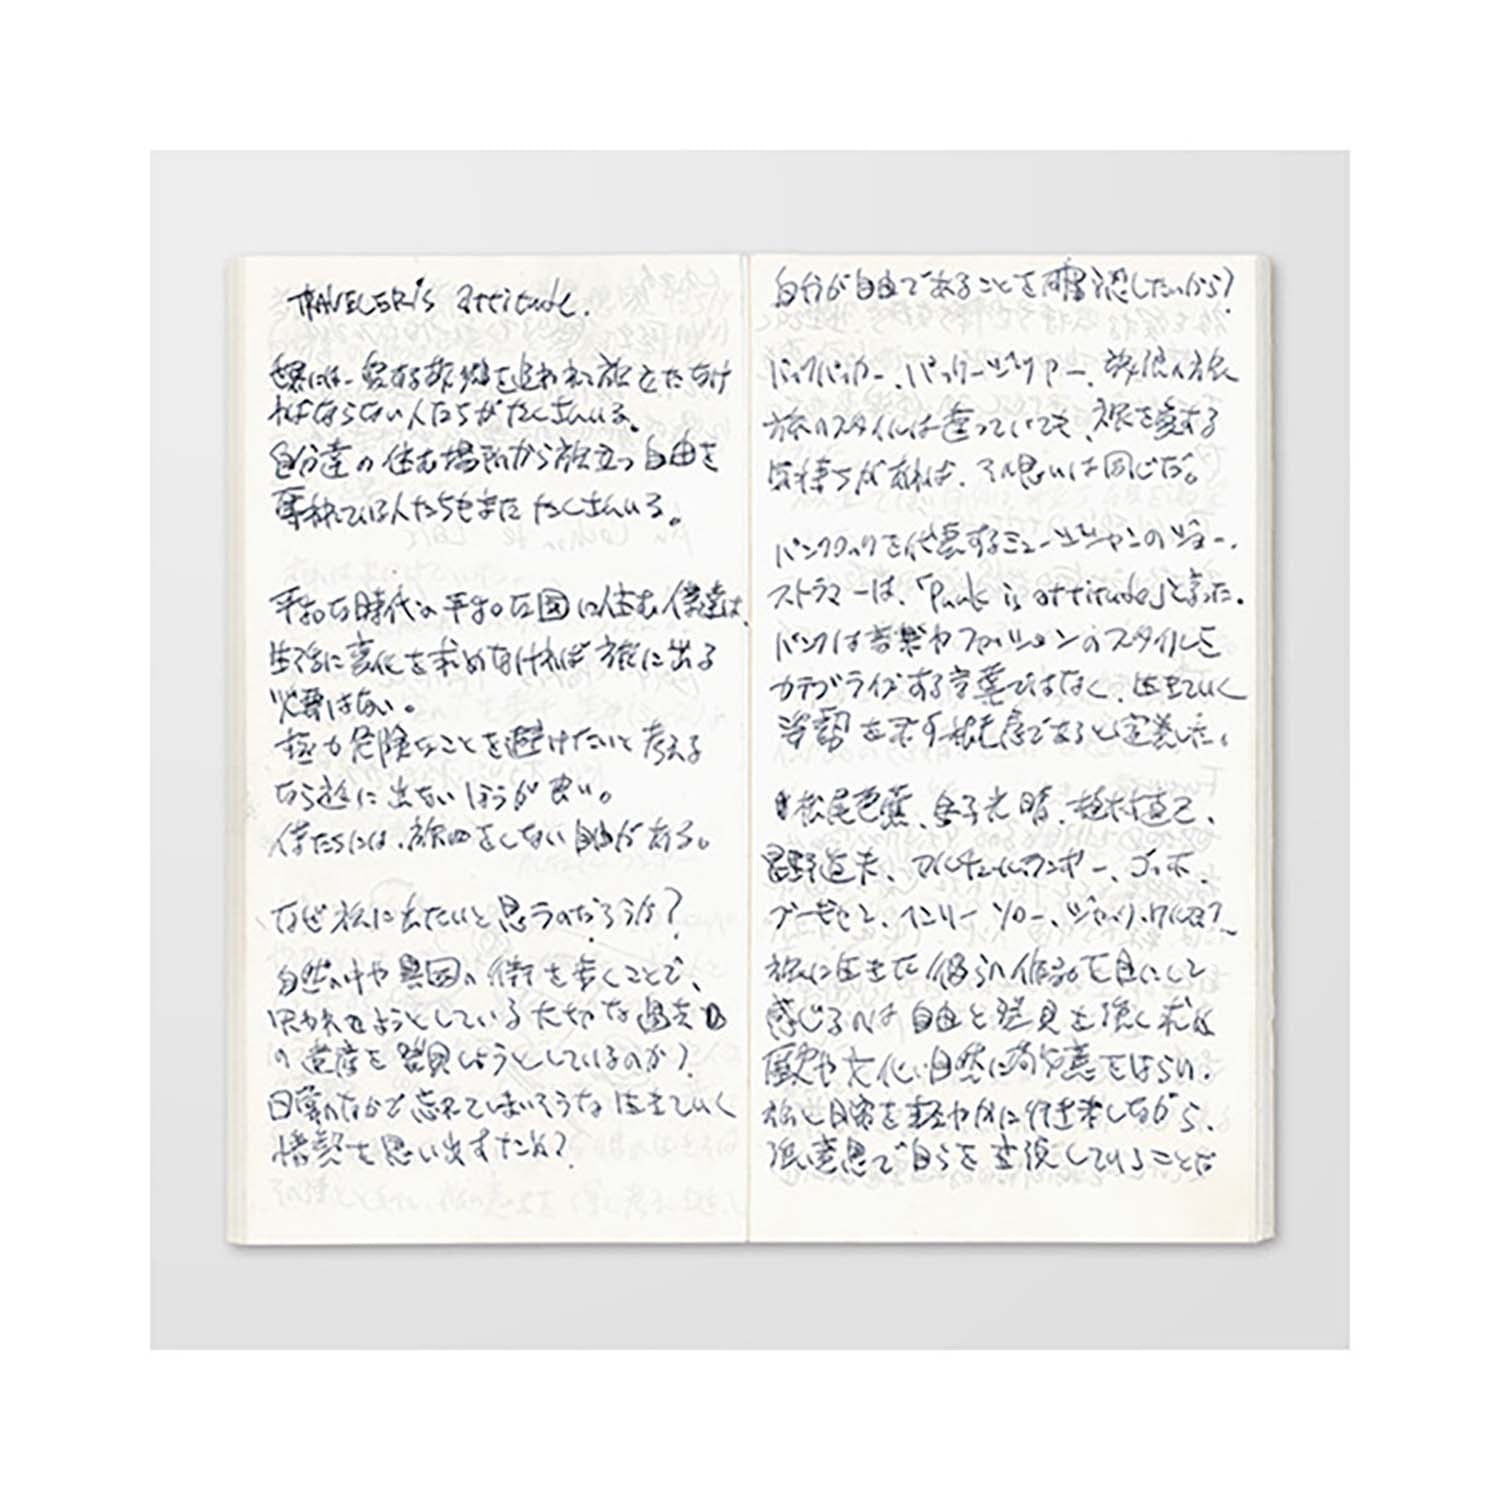 TRAVELER's attitude.
世界には、愛する故郷を追われて旅立たなけ
ればならない人たちがたくさんいる。
自分達の住む場所から旅立つ自由を
奪われている人たちもまた たくさんいる。
平和な時代の平和な国に住む僕達は、
生活に変化を求めなければ旅に出る
必要はない。
極力危険なことを避けたいと考える
なら旅に出ないほうが良い。
僕たちには、旅をしない自由がある。
なぜ旅に出たいと思うのだろうか?
自然の中や異国の街を歩くことで、
失われようとしている大切な過去
の遺産を発見しようとしているのか?
日常のなかで忘れてしまいそうな 生きていく
情熱を思い出すため?
自分が自由であることを確認したいから?
バックパッカー、パッケージツアー、放浪の旅
旅のスタイルは違っていても、旅を愛する
気持ちがあれば、その思いは同じだ。
パンクロックを代表するミュージシャンのジョー・
ストラマーは、「Punk is attitude」と言った。
パンクは音楽やファッションのスタイルを
カテゴライズする言葉ではなく、生きていく
姿勢を示す言葉であると定義した。
松尾芭蕉、金子光晴、植村直己、
星野道夫、アルチュール・ランボー、ゴッホ、
ゴーギャン、ヘンリー・ソロー、ジャック・ケルアック
旅に生きた彼らの作品を目にして
感じるのは自由と発見を強く求め
歴史や文化、自然に敬意をはらい、
旅と日常を軽やかに行き来しながら、
強い意思で自らを表現していることだ